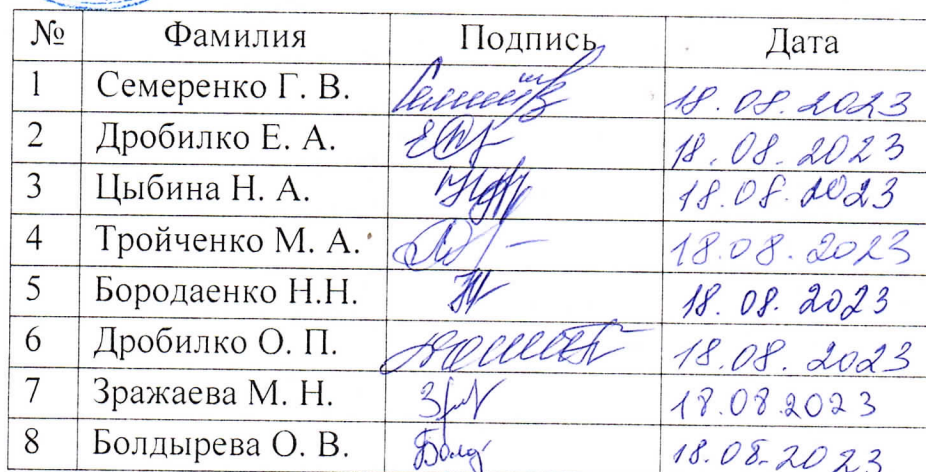 № Фамилия Подпись Дата
1 Семеренко Г. В. 18.08.2023
2 Дробилко Е. А. 18.08.2023
3 Цыбина Н. А. 18.08.2023
4 Тройченко М. А. 18.08.2023
5 Бородаенко Н.Н. 18.08.2023
6 Дробилко О. П. 18.08.2023
7 Зражаева М. Н. 18.08.2023
8 Болдырева О. В. 18.08.2023